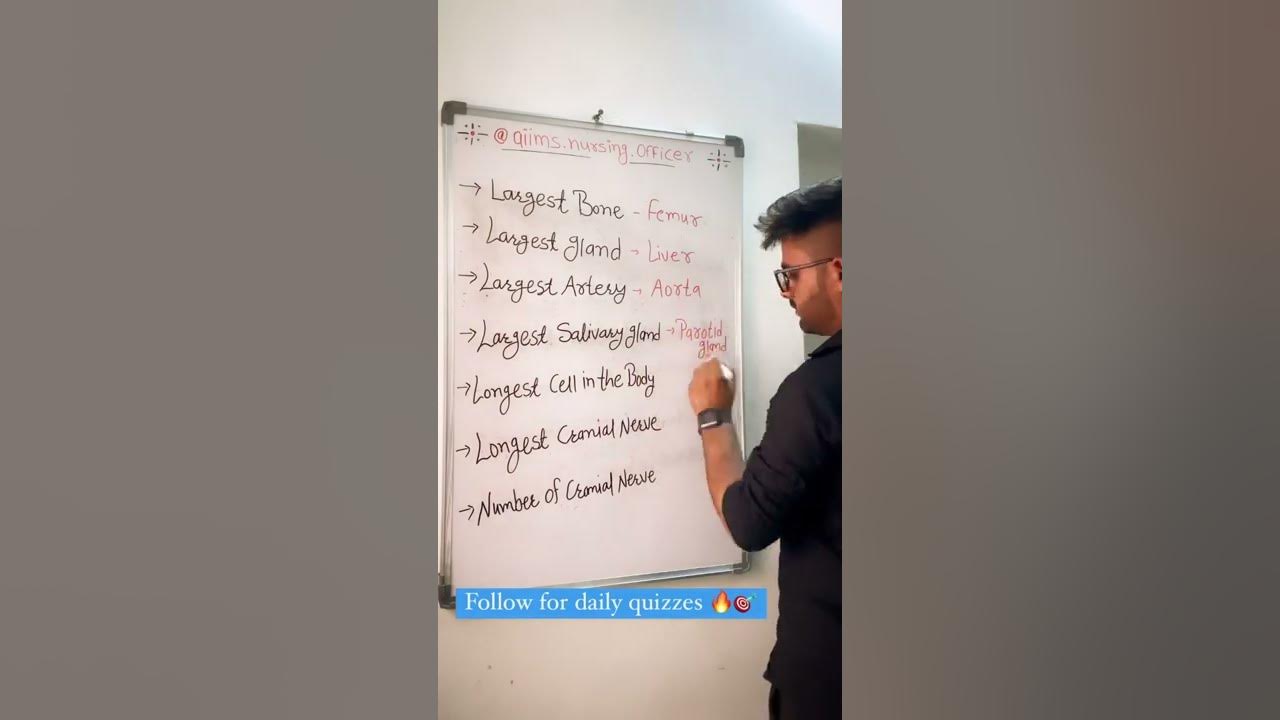 @aiims.nursing.officer
→ Largest Bone - Femur
→ Largest gland - Liver
→ Largest Artery → Aorta
→ Largest Salivary gland → Parotid
gland
→ Longest Cell in the Body
→ Longest Cranial Nerve
→ Number of Cranial Nerve
Follow for daily quizzes 🔥🎯